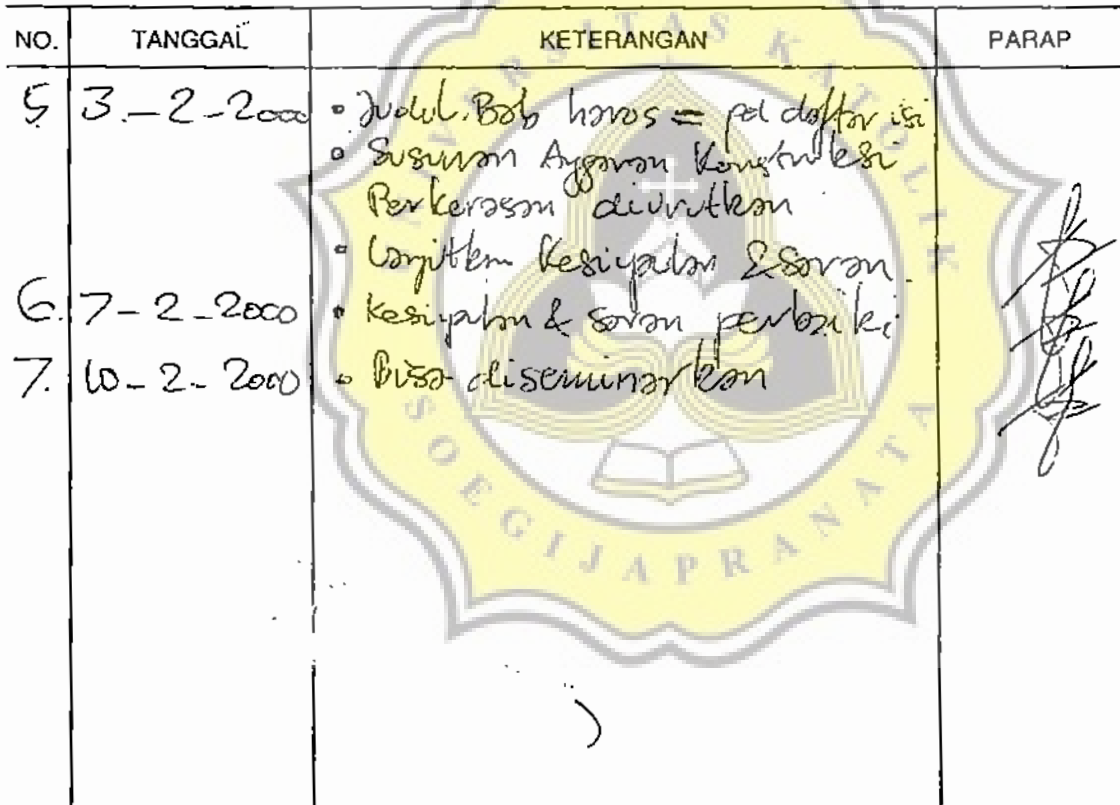 NO. TANGGAL KETERANGAN PARAP
UNIVERSITAS KATOLIK
5 3-2-2000 • Judul Bab harus = pd daftar isi
• Susunan Anggaran Konstruksi
Perkerasan diurutkan
• Lanjutkan Kesimpulan & Saran
6. 7-2-2000 • Kesimpulan & saran perbaiki
7. 10-2-2000 • Bisa diseminarkan
SOEGIJAPRANATA